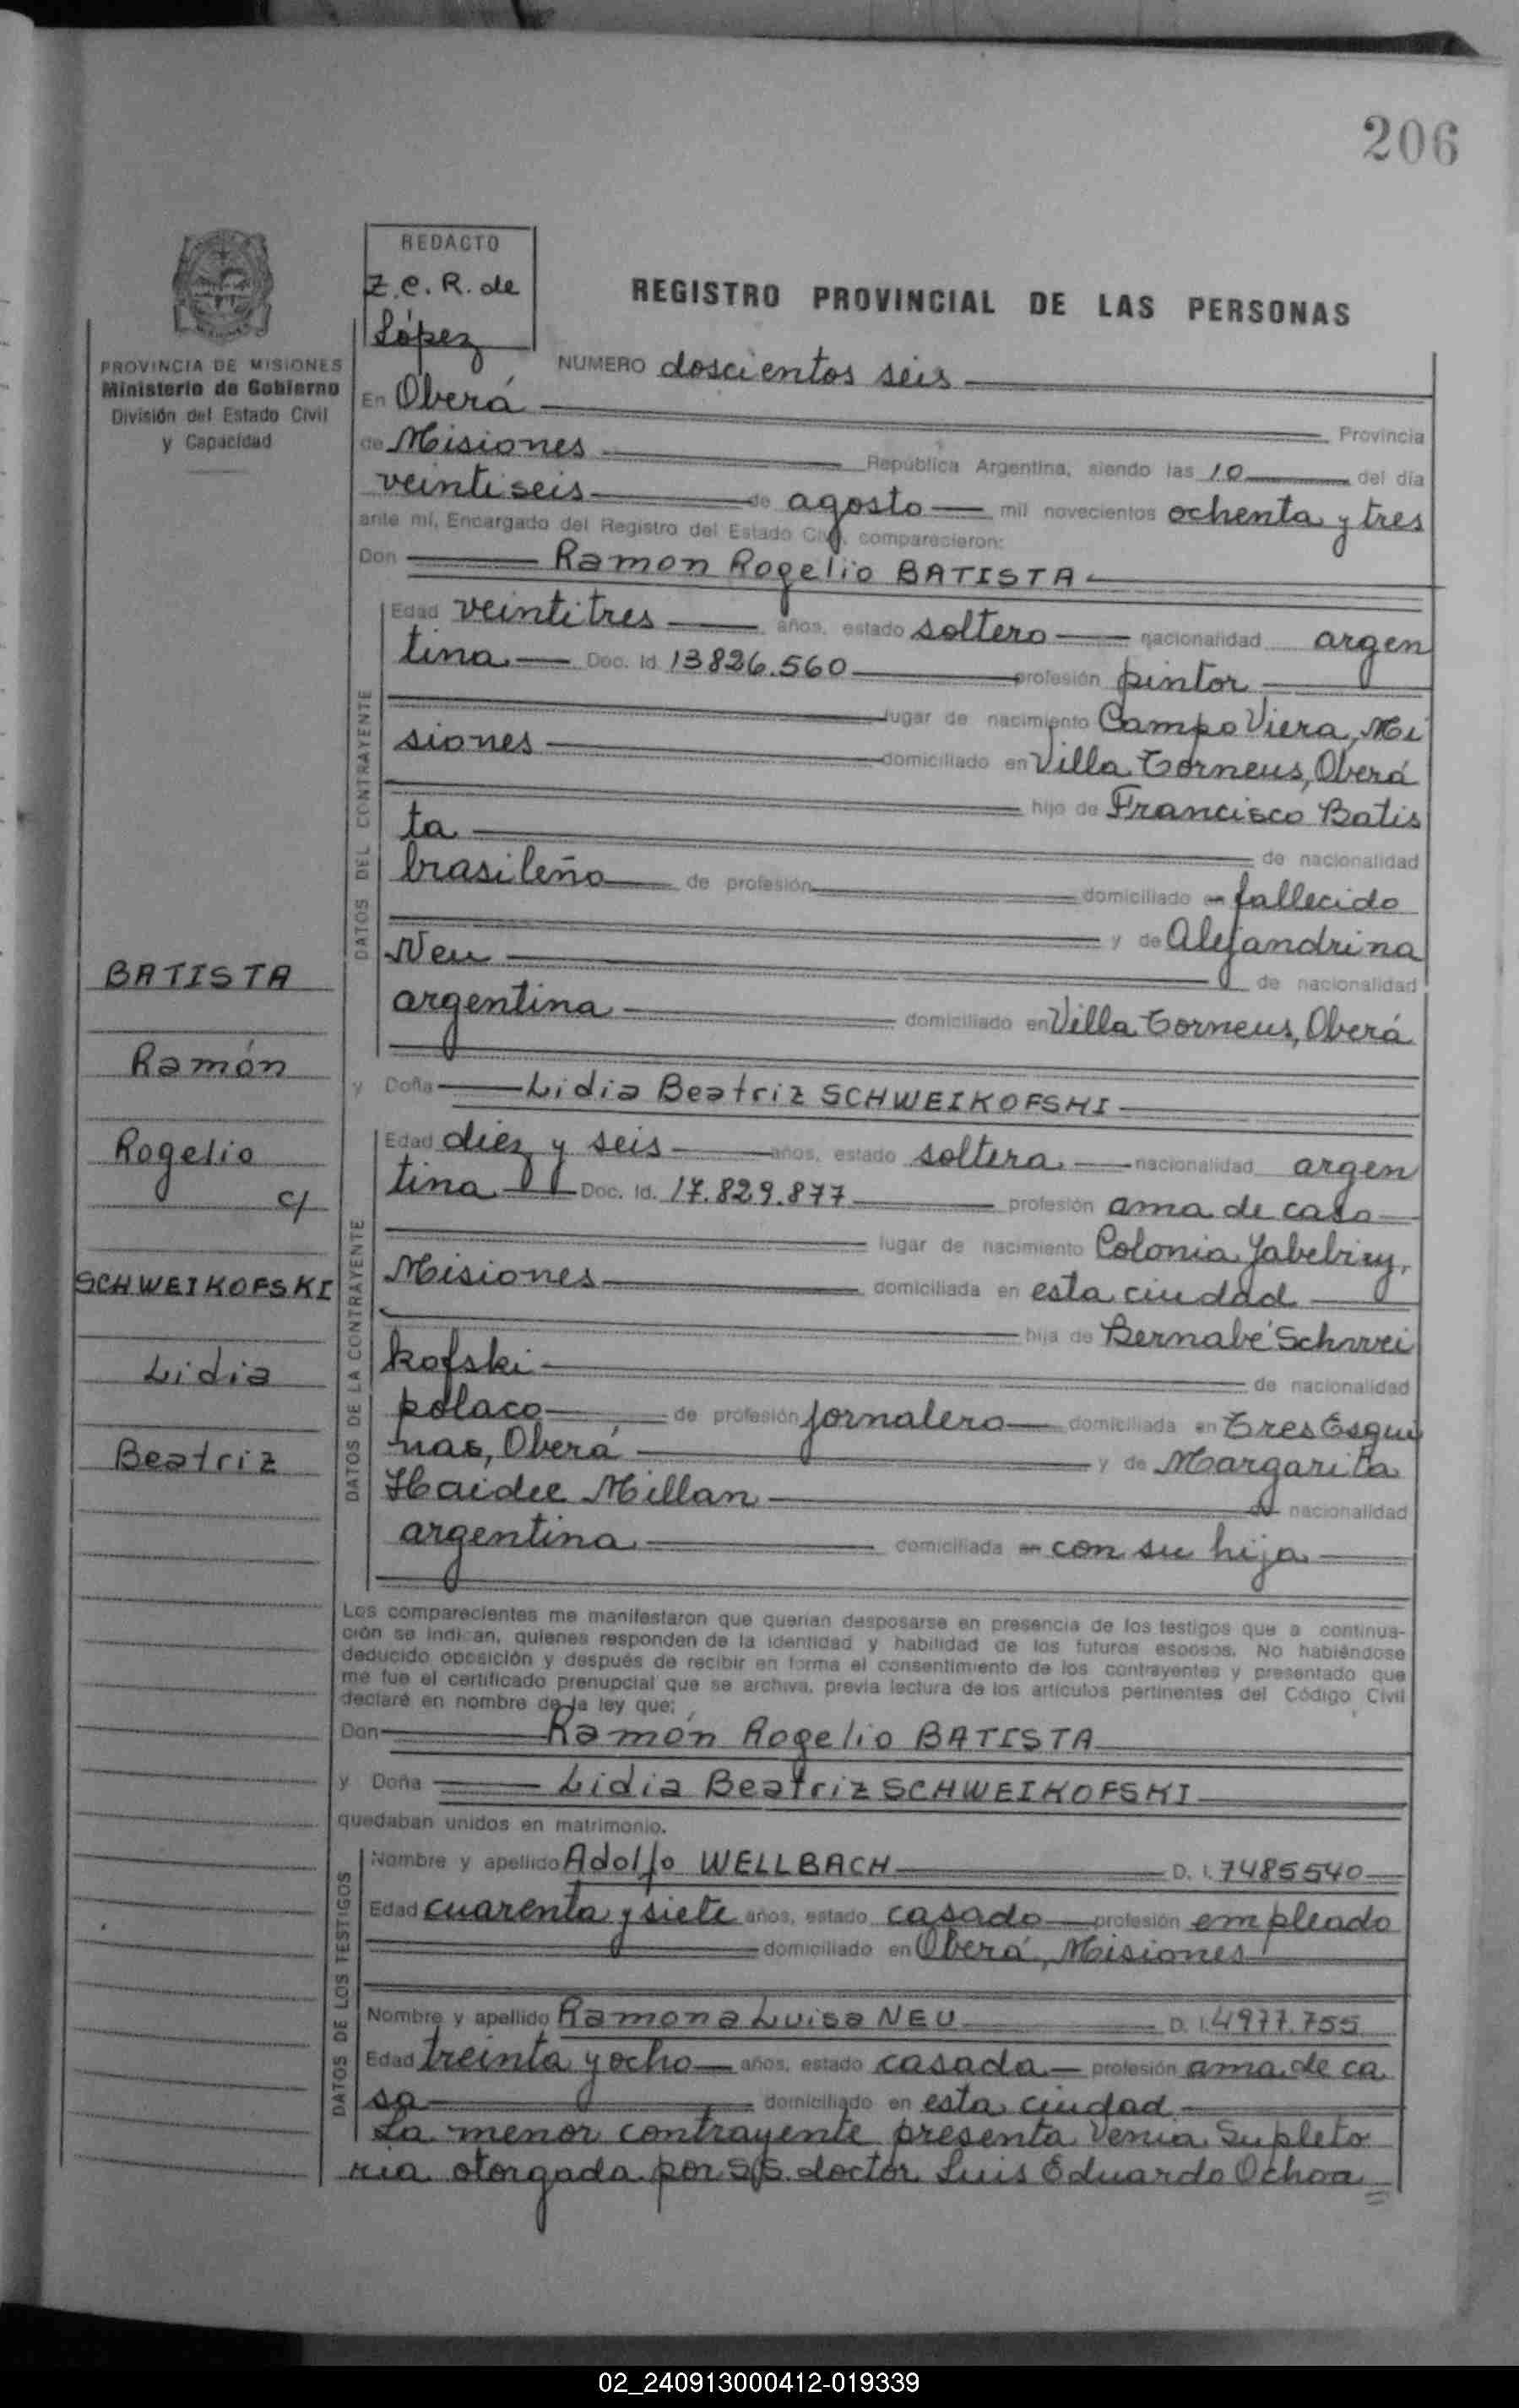 206
REDACTO
Z.C.R. de
López
REGISTRO PROVINCIAL DE LAS PERSONAS
PROVINCIA DE MISIONES
Ministerio de Gobierno
División del Estado Civil
y Capacidad
NUMERO doscientos seis
En Oberá Provincia
de Misiones República Argentina, siendo las 10 del día
veintiseis de agosto mil novecientos ochenta y tres
ante mí, Encargado del Registro del Estado Civil, comparecieron:
Don Ramon Rogelio BATISTA
DATOS DEL CONTRAYENTE
Edad veintitres años, estado soltero nacionalidad argen
tina Doc. Id. 13826.560 profesión pintor
lugar de nacimiento Campo Viera, Mi
siones domiciliado en Villa Torneus, Oberá
hijo de Francisco Batis
ta de nacionalidad
brasileño de profesión domiciliado en fallecido
y de Alejandrina
Neu de nacionalidad
argentina domiciliado en Villa Torneus, Oberá
y Doña Lidia Beatriz SCHWEIKOFSKI
DATOS DE LA CONTRAYENTE
Edad diez y seis años, estado soltera nacionalidad argen
tina Doc. Id. 17.829.877 profesión ama de casa
lugar de nacimiento Colonia Yabebiry,
Misiones domiciliada en esta ciudad
hija de Bernabé Schwei
kofski de nacionalidad
polaco de profesión jornalero domiciliada en Tres Esqui
nas, Oberá y de Margarita
Haidee Millan de nacionalidad
argentina domiciliada en con su hija
BATISTA
Ramón
Rogelio
c/
SCHWEIKOFSKI
Lidia
Beatriz
Los comparecientes me manifestaron que querían desposarse en presencia de los testigos que a continua-
ción se indican, quienes responden de la identidad y habilidad de los futuros esposos. No habiéndose
deducido oposición y después de recibir en forma el consentimiento de los contrayentes y presentado que
me fue el certificado prenupcial que se archiva, previa lectura de los artículos pertinentes del Código Civil
declaré en nombre de la ley que:
Don Ramón Rogelio BATISTA
y Doña Lidia Beatriz SCHWEIKOFSKI
quedaban unidos en matrimonio.
DATOS DE LOS TESTIGOS
Nombre y apellido Adolfo WELLBACH D. I. 7485540
Edad cuarenta y siete años, estado casado profesión empleado
domiciliado en Oberá, Misiones
Nombre y apellido Ramona Luisa NEU D. I. 4977.755
Edad treinta y ocho años, estado casada profesión ama de ca
sa domiciliado en esta ciudad
La menor contrayente presenta Venia Supleto
ria otorgada por S/S. doctor Luis Eduardo Ochoa
02_240913000412-019339